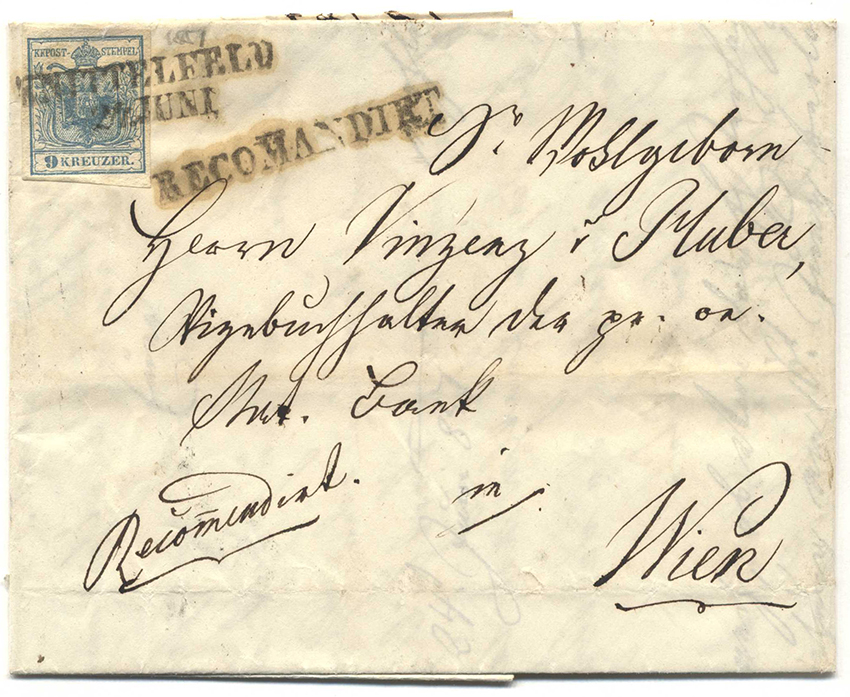 KKPOST-STEMPEL
KNITTELFELD
JUNI
9 KREUZER.
RECOMANDIRT
Sr. Wohlgeborn
Herrn Vinzenz v Huber,
Vizebuchhalter der pr. oe.
Nat. Bank
Recomendirt.
in
Wien